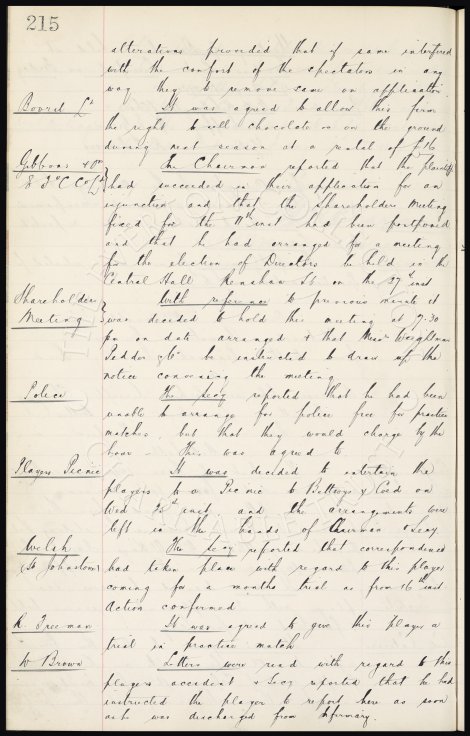 215
alterations provided that if same interfered
with the comfort of the spectators in any
way they to remove same on application
Bovril Ld
It was agreed to allow this firm
the right to sell chocolates on the ground
during next season at a rental of £16
Gibbons & Or
E F C Co Ld
The Chairman reported that the plaintiff
had succeeded in their application for an
injunction and that the Shareholders Meeting
fixed for the 11th inst had been postponed
and that he had arranged for a meeting
for the election of Directors be held in the
Central Hall Renshaw St on the 27th inst
Shareholders
Meeting
With reference to previous minute it
was decided to hold this meeting at 7.30
pm on date arranged & that Messrs
be instructed to draw up the
notice convening the meeting
Police
The Secy reported that he had been
unable to arrange for police free for practice
matches, but that they would charge by the
hour - This was agreed to
Players Picnic
It was decided to entertain the
players to a Picnic to Bettws y Coed on
Wed inst and the arrangements were
left in the hands of Chairman & Secy
Welsh
St Johnstone
The Secy reported that correspondence
had taken place with regard to this player
coming for a months trial as from 16th inst
Action confirmed
R. Freeman
It was agreed to give this player a
trial in practice match
W Brown
Letters were read with regard to this
players accident & Secy reported that he had
instructed the player to report here as soon
as he was discharged from Infirmary.